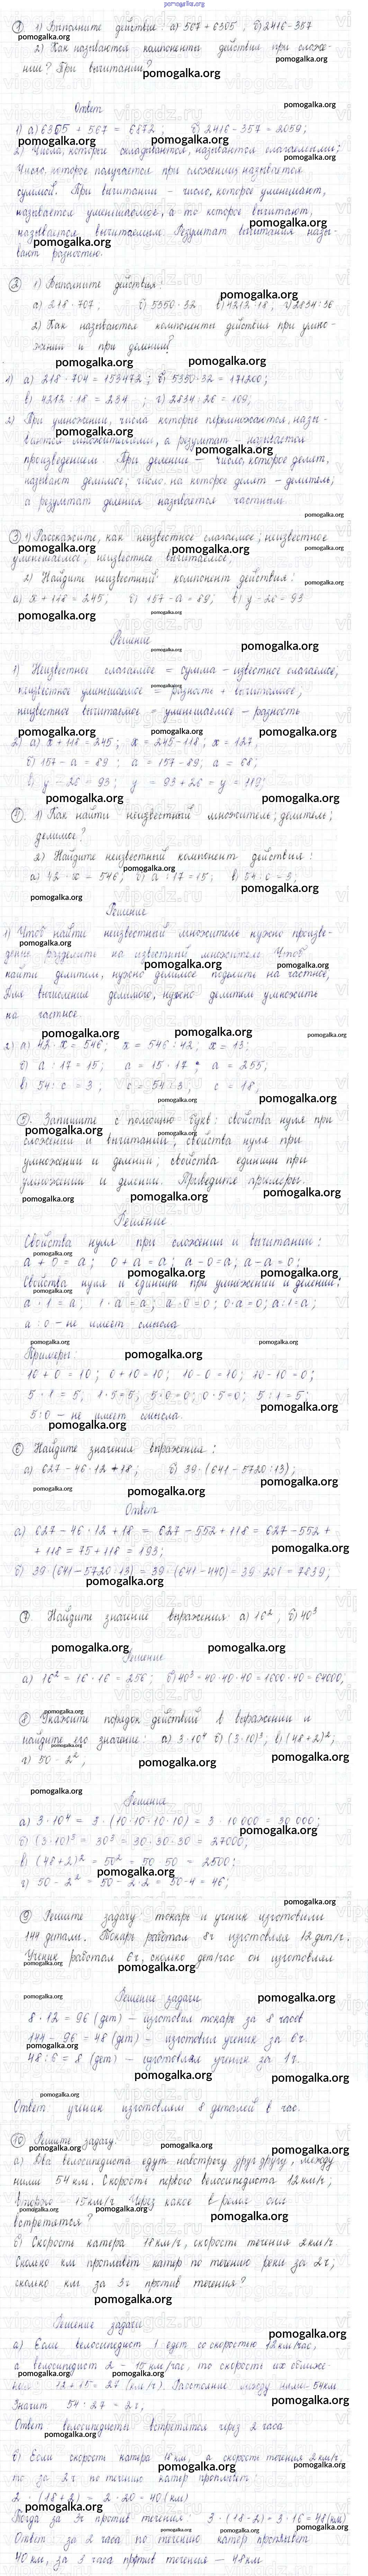 pomogalka.org
① 1) Выполните действие: а) 567 + 6305; б) 2416 - 357
2) Как называются компоненты действия при сложе-
нии? При вычитании?
Ответ
1) а) 6305 + 567 = 6872; б) 2416 - 357 = 2059;
2) Числа, которые складываются, называются слагаемыми;
число, которое получается при сложении называется
суммой. При вычитании - число, которое уменьшают,
называется уменьшаемое, а то которое вычитают,
называется вычитаемым. Результат вычитания назы-
вают разностью.
② 1) Выполните действия:
а) 218 · 704; б) 5350 · 32 в) 4212 : 18; г) 2834 : 26
2) Как называются компоненты действия при умно-
жении и при делении?
1) а) 218 · 704 = 153472; б) 5350 · 32 = 171200;
в) 4212 : 18 = 234; г) 2834 : 26 = 109;
2) При умножении, числа которые перемножаются, назы-
ваются множителями, а результат - называется
произведением. При делении - число, которое делят,
называют делимое; число, на которое делят - делитель,
а результат деления называется частным.
③ 1) Расскажите, как неизвестное слагаемое; неизвестное
уменьшаемое, неизвестное вычитаемое,
2) Найдите неизвестный компонент действия:
а) x + 118 = 245; б) 157 - a = 89; в) y - 26 = 93
Решение
1) Неизвестное слагаемое = сумма - известное слагаемое;
неизвестное уменьшаемое = разность + вычитаемое;
неизвестное вычитаемое = уменьшаемое - разность
2) а) x + 118 = 245; x = 245 - 118; x = 127;
б) 157 - a = 89; a = 157 - 89; a = 68;
в) y - 26 = 93; y = 93 + 26 = y = 119;
④ 1) Как найти неизвестный множитель; делитель;
делимое?
2) Найдите неизвестный компонент действия:
а) 42 · x = 546; б) a : 17 = 15; в) 54 : c = 3;
Решение
1) Чтоб найти неизвестный множитель нужно произве-
дение разделить на известный множитель. Чтоб
найти делитель, нужно делимое поделить на частное,
Для вычисления делимого, нужно делитель умножить
на частное.
2) а) 42 · x = 546; x = 546 : 42; x = 13;
б) a : 17 = 15; a = 15 · 17; a = 255;
в) 54 : c = 3; c = 54 : 3; c = 18;
⑤ Запишите с помощью букв: свойства нуля при
сложении и вычитании; свойства нуля при
умножении и делении; свойства единицы при
умножении и делении. Приведите примеры.
Решение
Свойства нуля при сложении и вычитании:
a + 0 = a; 0 + a = a; a - 0 = a; a - a = 0;
Свойства нуля и единицы при умножении и делении;
a · 1 = a; 1 · a = a; a · 0 = 0; 0 · a = 0; a : 1 = a;
a : 0 - не имеет смысла
Примеры:
10 + 0 = 10; 0 + 10 = 10; 10 - 0 = 10; 10 - 10 = 0;
5 · 1 = 5; 1 · 5 = 5; 5 · 0 = 0; 0 · 5 = 0; 5 : 1 = 5;
5 : 0 - не имеет смысла.
⑥ Найдите значения выражения:
а) 627 - 46 · 12 + 118; б) 39 · (641 - 5720 : 13);
Ответ
а) 627 - 46 · 12 + 18 = 627 - 552 + 118 = 627 - 552 +
+ 118 = 75 + 118 = 193;
б) 39 · (641 - 5720 : 13) = 39 · (641 - 440) = 39 · 201 = 7839;
⑦ Найдите значение выражения: а) 16²; б) 40³
Решение
а) 16² = 16 · 16 = 256; б) 40³ = 40 · 40 · 40 = 1600 · 40 = 64000;
⑧ Укажите порядок действий в выражении и
найдите его значение: а) 3 · 10⁴ б) (3 · 10)³; в) (48 + 2)²;
г) 50 - 2²;
Решение
а) 3 · 10⁴ = 3 · (10 · 10 · 10 · 10) = 3 · 10 000 = 30 000;
б) (3 · 10)³ = 30³ = 30 · 30 · 30 = 27000;
в) (48 + 2)² = 50² = 50 · 50 = 2500;
г) 50 - 2² = 50 - 2 · 2 = 50 - 4 = 46;
⑨ Решите задачу: токарь и ученик изготовили
144 детали. Токарь работал 8ч изготовляя 12 дет/ч.
Ученик работал 6ч. сколько дет/час он изготовлял
Решение задачи
8 · 12 = 96 (дет) - изготовил токарь за 8 часов
144 - 96 = 48 (дет) - изготовил ученик за 6ч.
48 : 6 = 8 (дет) - изготовлял ученик за 1ч.
Ответ ученик изготовлял 8 деталей в час.
⑩ Решите задачу:
а) Два велосипедиста едут навстречу друг другу, между
ними 54 км. Скорость первого велосипедиста 12 км/ч;
второго 15 км/ч. Через какое время они
встретятся?
б) Скорость катера 18 км/ч, скорость течения 2 км/ч.
Сколько км проплывёт катер по течению реки за 2ч;
сколько км за 3ч против течения?
Решение задачи
а) Если велосипедист 1 едет со скоростью 12 км/час,
а велосипедист 2 - 15 км/час, то скорость их сближе-
ния 12 + 15 = 27 (км/ч). Расстояние между ними 54км
Значит 54 : 27 = 2ч,
Ответ велосипедисты встретятся через 2 часа
б) Если скорость катера 18 км, а скорость течения 2 км/ч,
то за 2ч по течению катер проплывет:
2 · (18 + 2) = 2 · 20 = 40 (км)
Тогда за 3ч против течения 3 · (18 - 2) = 3 · 16 = 48 (км)
Ответ за 2 часа по течению катер проплывет
40 км, за 3 часа против течения - 48 км